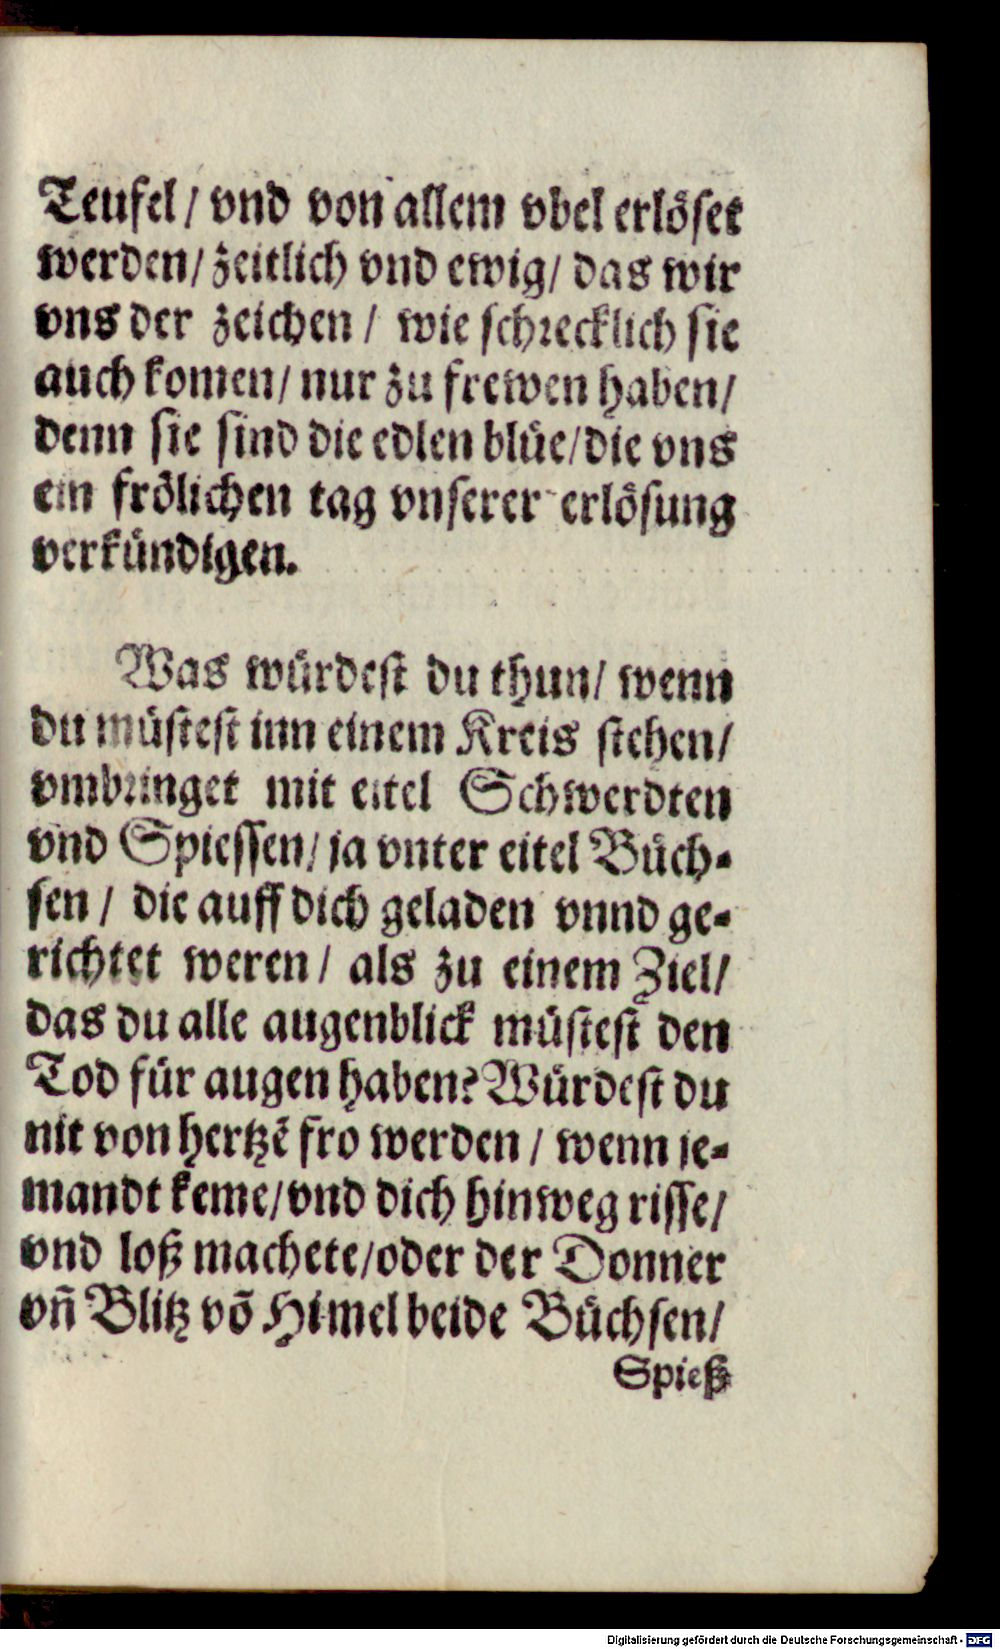 Teufel / vnd von allem vbel erlöset
werden / zeitlich vnd ewig / das wir
vns der zeichen / wie schrecklich sie
auch komen / nur zu frewen haben /
denn sie sind die edlen blüe / die vns
ein frölichen tag vnserer erlösung
verkündigen.
Was würdest du thun / wenn
du müstest inn einem Kreis stehen /
vmbringet mit eitel Schwerdten
vnd Spiessen / ja vnter eitel Büch-
sen / die auff dich geladen vnnd ge-
richtet weren / als zu einem Ziel /
das du alle augenblick müstest den
Tod für augen haben? Würdest du
nit von hertzẽ fro werden / wenn je-
mandt keme / vnd dich hinweg risse /
vnd loß machete / oder der Donner
vñ Blitz võ Himel beide Büchsen /
Spieß
Digitalisierung gefördert durch die Deutsche Forschungsgemeinschaft - DFG